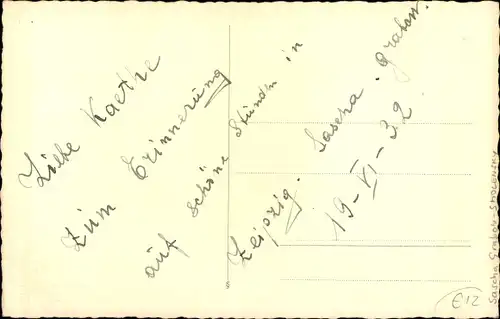 Liebe Kaethe
Zum Erinnerung
auf schöne Stunden in
Leipzig. Sascha. Grabow.
19-VI-32
S
Sascha Grabow Smolensky
€12